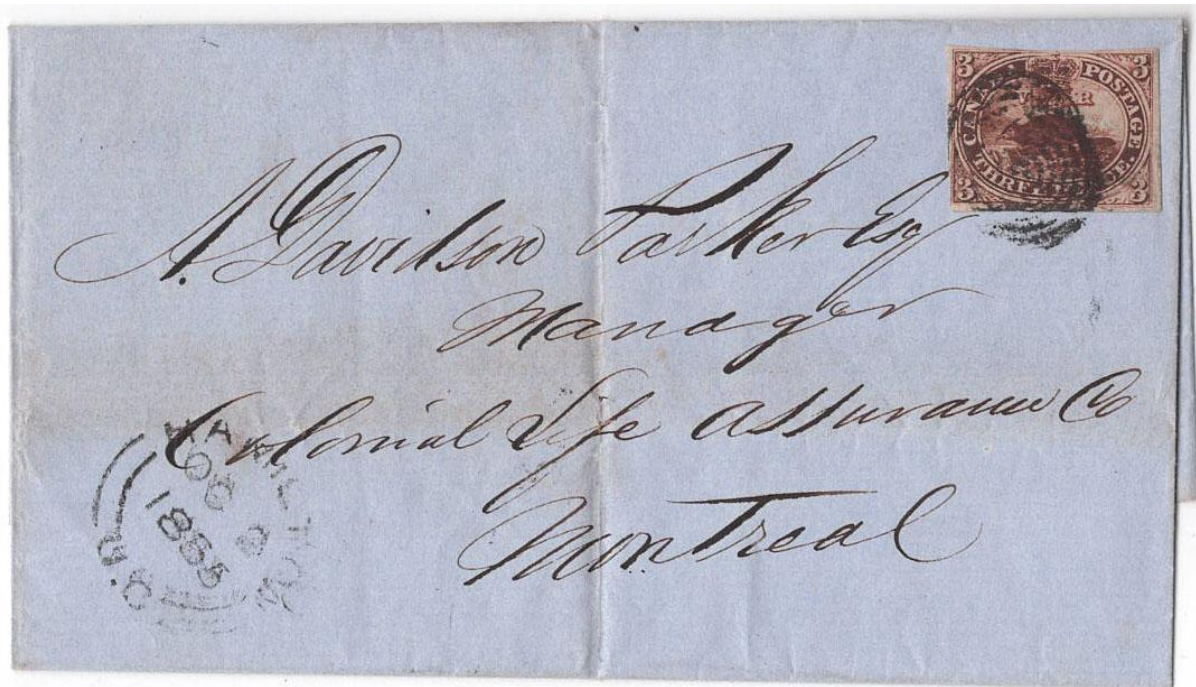 3 3
CANADA POSTAGE
V R
THREE PENCE.
3 3
A. Davidson Parker Esq
Manager
Colonial Life Assurance Co
Montreal
HAMILTON
1855
C.W.